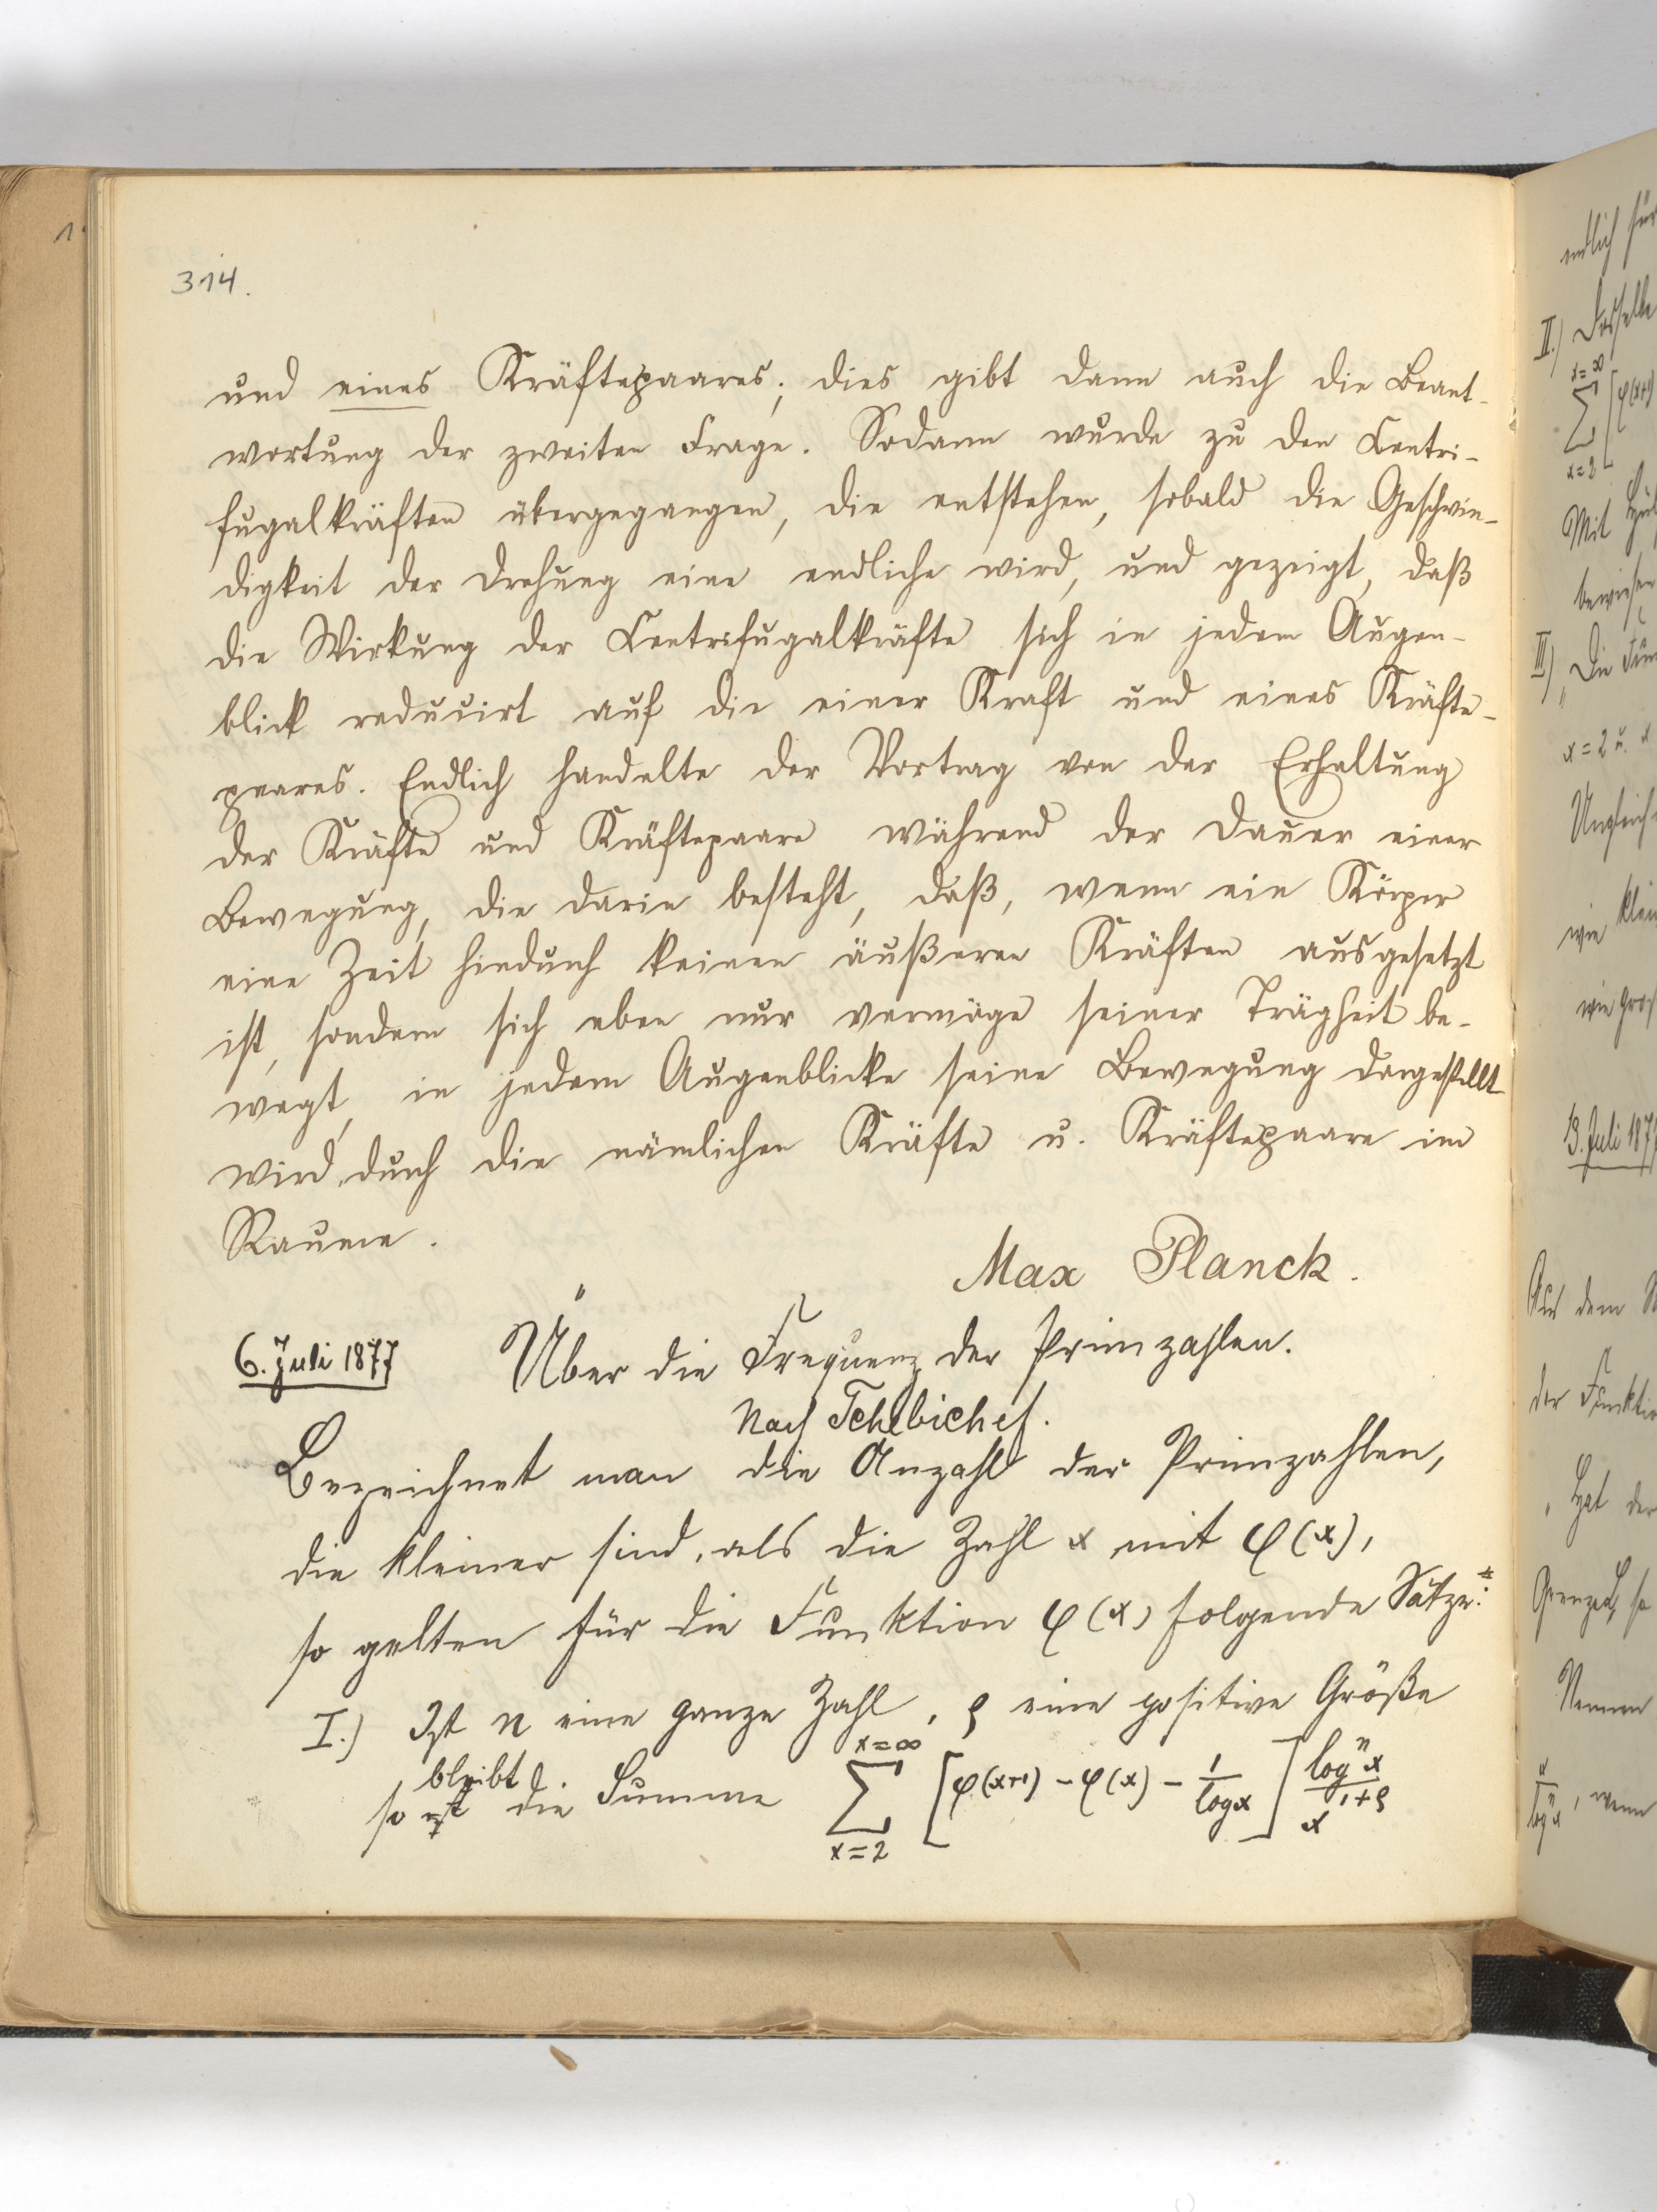 314.
und eines Kräftepaares; dies gibt dann auch die Beant-
wortung der zweiten Frage. Sodann wurde zu den Centri-
fugalkräften übergegangen, die entstehen, sobald die Geschwin-
digkeit der Drehung eine endliche wird, und gezeigt, daß
die Wirkung der Centrifugalkräfte sich in jedem Augen-
blick reducirt auf die einer Kraft und eines Kräfte-
paares. Endlich handelte der Vortrag von der Erhaltung
der Kräfte und Kräftepaare während der Dauer einer
Bewegung, die darin besteht, daß, wenn ein Körper
eine Zeit hindurch keinen äußeren Kräften ausgesetzt
ist, sondern sich eben nur vermöge seiner Trägheit be-
wegt, in jedem Augenblicke seine Bewegung dargestellt
wird durch die nämlichen Kräfte u. Kräftepaare im
Raume.
Max Planck.
6. Juli 1877 Über die Frequenz der Primzahlen.
Nach Tchebichef.
Bezeichnet man die Anzahl der Primzahlen,
die kleiner sind, als die Zahl x mit φ(x),
so gelten für die Funktion φ(x) folgende Sätze:
I.) Ist n eine ganze Zahl, ρ eine positive Größe
so bleibt die Summe ∑_{x=2}^{x=∞} [φ(x+1) - φ(x) - 1/log x] log^n x / x^{1+ρ}
endlich für
II.) Dasselbe
x=∞ ∑ x=2 [φ(x+1)
Mit
bewiesen
III.) "Die
x=2 u. x
wie klein
wie gro
13. Juli 1877
Aus dem
der Funktio
"Hat der
Grenze
Nennen
x / log^n x, wenn